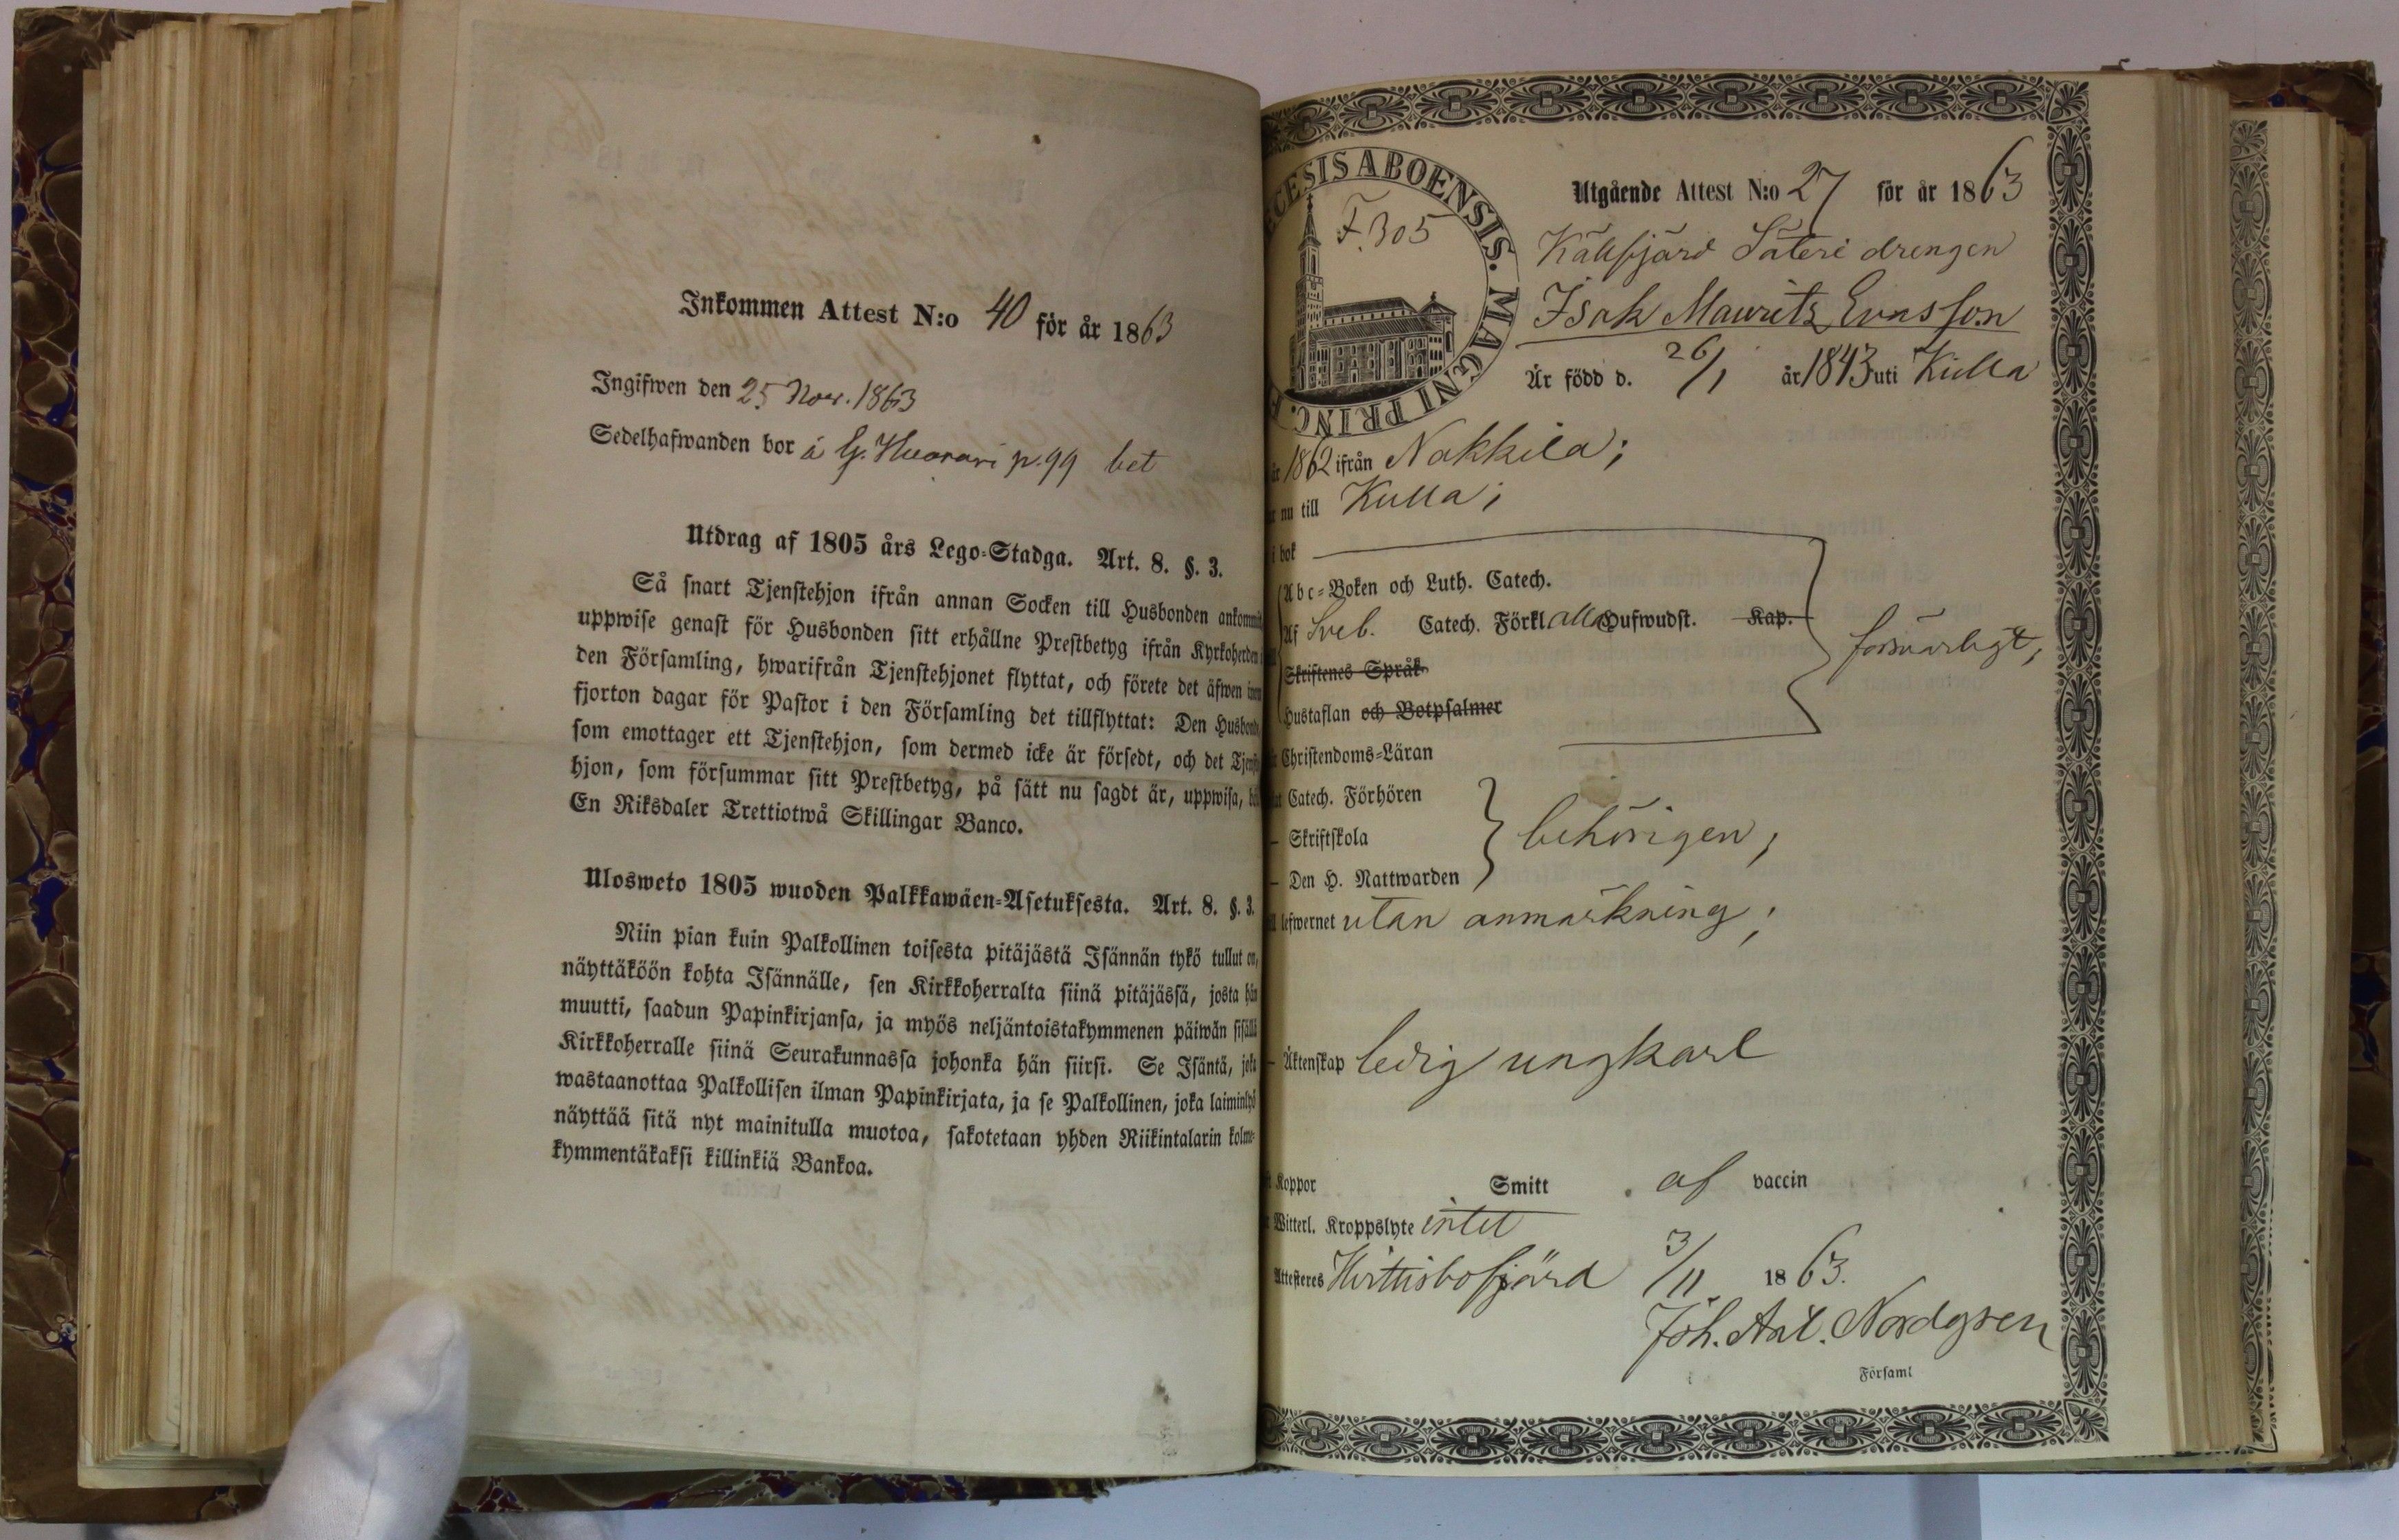 Inkommen Attest N:o 40 för år 1863
Ingifwen den 25 Nov. 1863
Sedelhafwanden bor å G. Huorari p. 99 bet
Utdrag af 1805 års Lego-Stadga. Art. 8. §. 3.
Så snart Tjenstehjon ifrån annan Socken till Husbonden ankommit
uppwise genast för Husbonden sitt erhållne Prestbetyg ifrån Kyrkoherden i
den Församling, hwarifrån Tjenstehjonet flyttat, och förete det äfwen inom
fjorton dagar för Pastor i den Församling det tillflyttat: Den Husbonde,
som emottager ett Tjenstehjon, som dermed icke är försedt, och det Tjenste
hjon, som försummar sitt Prestbetyg, på sätt nu sagdt är, uppwisa,
En Riksdaler Trettiotwå Skillingar Banco.
Ulosweto 1805 wuoden Palkkawäen-Asetuksesta. Art. 8. §. 3.
Niin pian kuin Palkollinen toisesta pitäjästä Isännän tykö tullut on,
näyttäköön kohta Isännälle, sen Kirkkoherralta siinä pitäjässä, josta hän
muutti, saadun Papinkirjansa, ja myös neljäntoistakymmenen päiwän sisällä
Kirkkoherralle siinä Seurakunnassa johonka hän siirsi. Se Isäntä, joka
wastaanottaa Palkollisen ilman Papinkirjata, ja se Palkollinen, joka laiminlyö
näyttää sitä nyt mainitulla muotoa, sakotetaan yhden Riikintalarin kolme-
kymmentäkaksi killinkiä Bankoa.
CESIS ABOENSIS. MAGNI PRINC. F
F. 305
Utgående Attest N:o 27 för år 1863
Källfjärd Säteri drengen
Isak Mauritz Evasson
Är född d. 26/1 år 1843 uti Kulla
år 1862 ifrån Nakkila;
nu till Kulla;
i bok
Abc-Boken och Luth. Catech.
Af Sveb. Catech. Förkl alla Hufwudst. Kap.
Skriftenes Språk
Hustaflan och Botpsalmer
försvarligt;
Christendoms-Läran
Catech. Förhören
– Skriftskola
– Den H. Nattwarden
behörigen;
lefwernet utan anmärkning;
– Äktenskap ledig ungkarl
Koppor Smitt af vaccin
Witterl. Kroppslyte intet
Attesteres Hvittisbofjärd 3/11 1863.
Joh. Axl. Nordgren
Församl